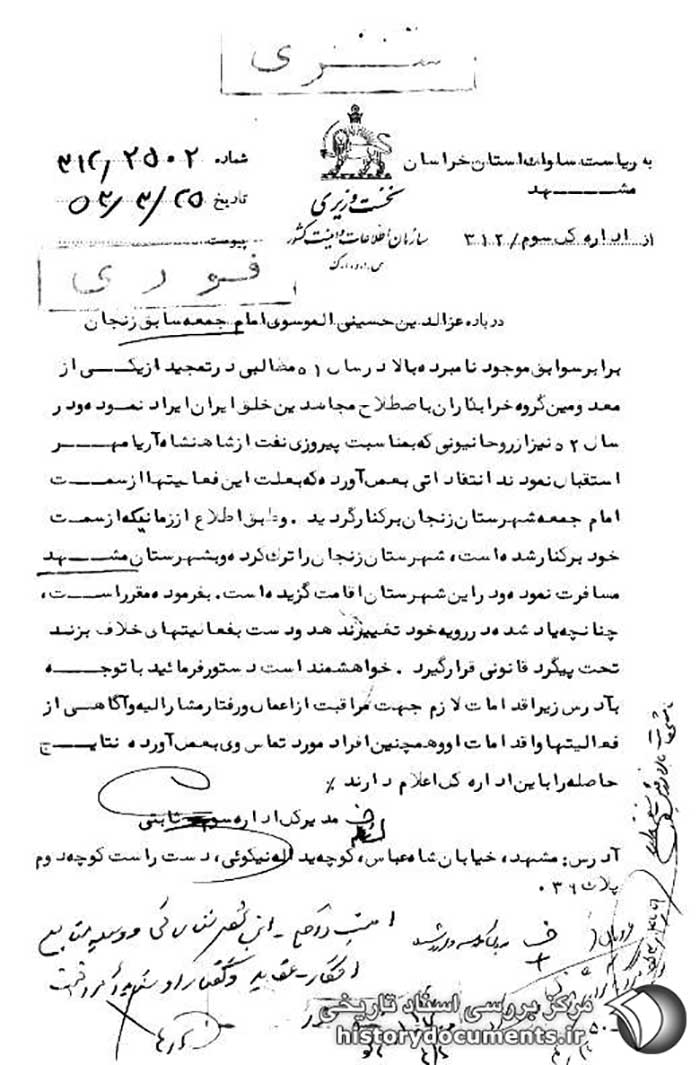 سری
به ریاست ساواك استان خراسان
مشهد
از اداره کل سوم / ۳۱۲
نخست وزیری
سازمان اطلاعات و امنیت کشور
س.ا.و.ا.ك
شماره ۳۱۲/۲۵۰۲
تاریخ ۵۳/۳/۲۵
پیوست
فوری
درباره عزالدین حسینی الموسوی امام جمعه سابق زنجان
برابر سوابق موجود نامبرده بالا در سال ۵۱ مطالبی در تمجید از یکی از
معدومین گروه خرابکاران باصطلاح مجاهدین خلق ایران ایراد نموده و در
سال ۵۲ نیز از روحانیونی که بمناسبت پیروزی نفت از شاهنشاه آریامهر
استقبال نمودند انتقاداتی بعمل آورده که بعلت این فعالیتها از سمت
امام جمعه شهرستان زنجان برکنار گردید . و طبق اطلاع از زمانیکه از سمت
خود برکنار شده است، شهرستان زنجان را ترك کرده و بشهرستان مشهد
مسافرت نموده و در این شهرستان اقامت گزیده است. بفرموده مقرر است،
چنانچه یاد شده در رویه خود تغییر ندهد و دست بفعالیتهای خلاف بزند
تحت پیگرد قانونی قرار گیرد . خواهشمند است دستور فرمائید با توجه
بآدرس زیر اقدامات لازم جهت مراقبت از اعمال و رفتار مشارالیه و آگاهی از
فعالیتها و اقدامات او و همچنین افراد مورد تماس وی بعمل آورده نتایج
حاصله را باین اداره کل اعلام دارند ٪
مدیر کل اداره سوم ثابتی
آدرس: مشهد، خیابان شاه عباس، کوچه یداله نیکوئی، دست راست کوچه دوم
پلاك ۰۳۶
مرکز بررسی اسناد تاریخی
historydocuments.ir